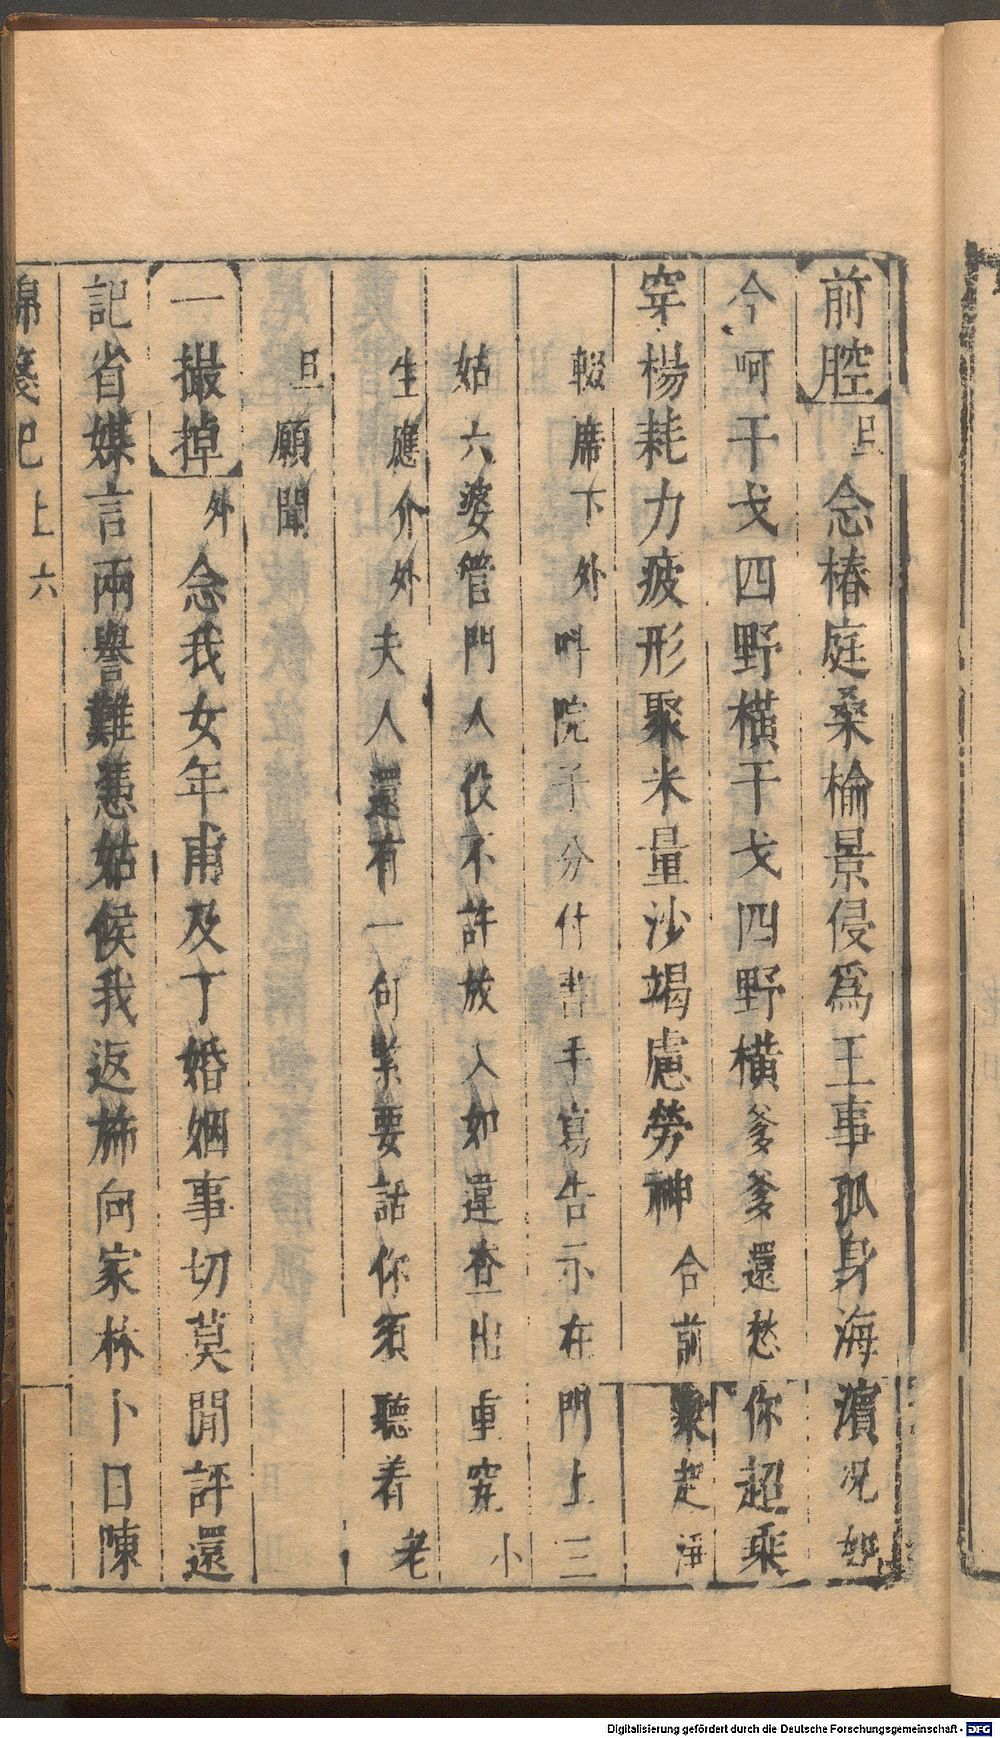 前腔旦念椿庭桑榆景侵爲王事孤身海濱况如
今呵干戈四野橫干戈四野橫爹爹還愁你超乘
穿楊耗力疲形聚米量沙竭慮勞神合前衆起淨
輟席下外叫院子分付書手寫告示在門上三
姑六婆管門人役不許放入如違查出重究小
生應介外夫人還有一句緊要話你須聽着老
旦願聞
一撮掉外念我女年甫及丁婚姻事切莫閒評還
記省媒言兩譽難憑姑侯我返斾向家林卜日陳
錦箋記上六
Digitalisierung gefördert durch die Deutsche Forschungsgemeinschaft - DFG